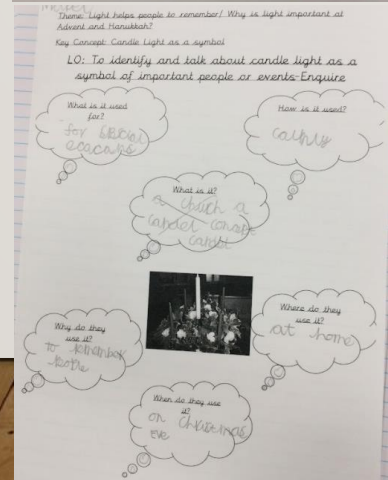 Theme: Light helps people to remember/ Why is light important at
Advent and Hanukkah?
Key Concept: Candle Light as a symbol
LO: To identify and talk about candle light as a
symbol of important people or events-Enquire
What is it used
for?
for
How is it used?
What is it?
a church a
candel
candel
Why do they
use it?
to
Where do they
use it?
at home
When do they use
it?
on Christmas
eve